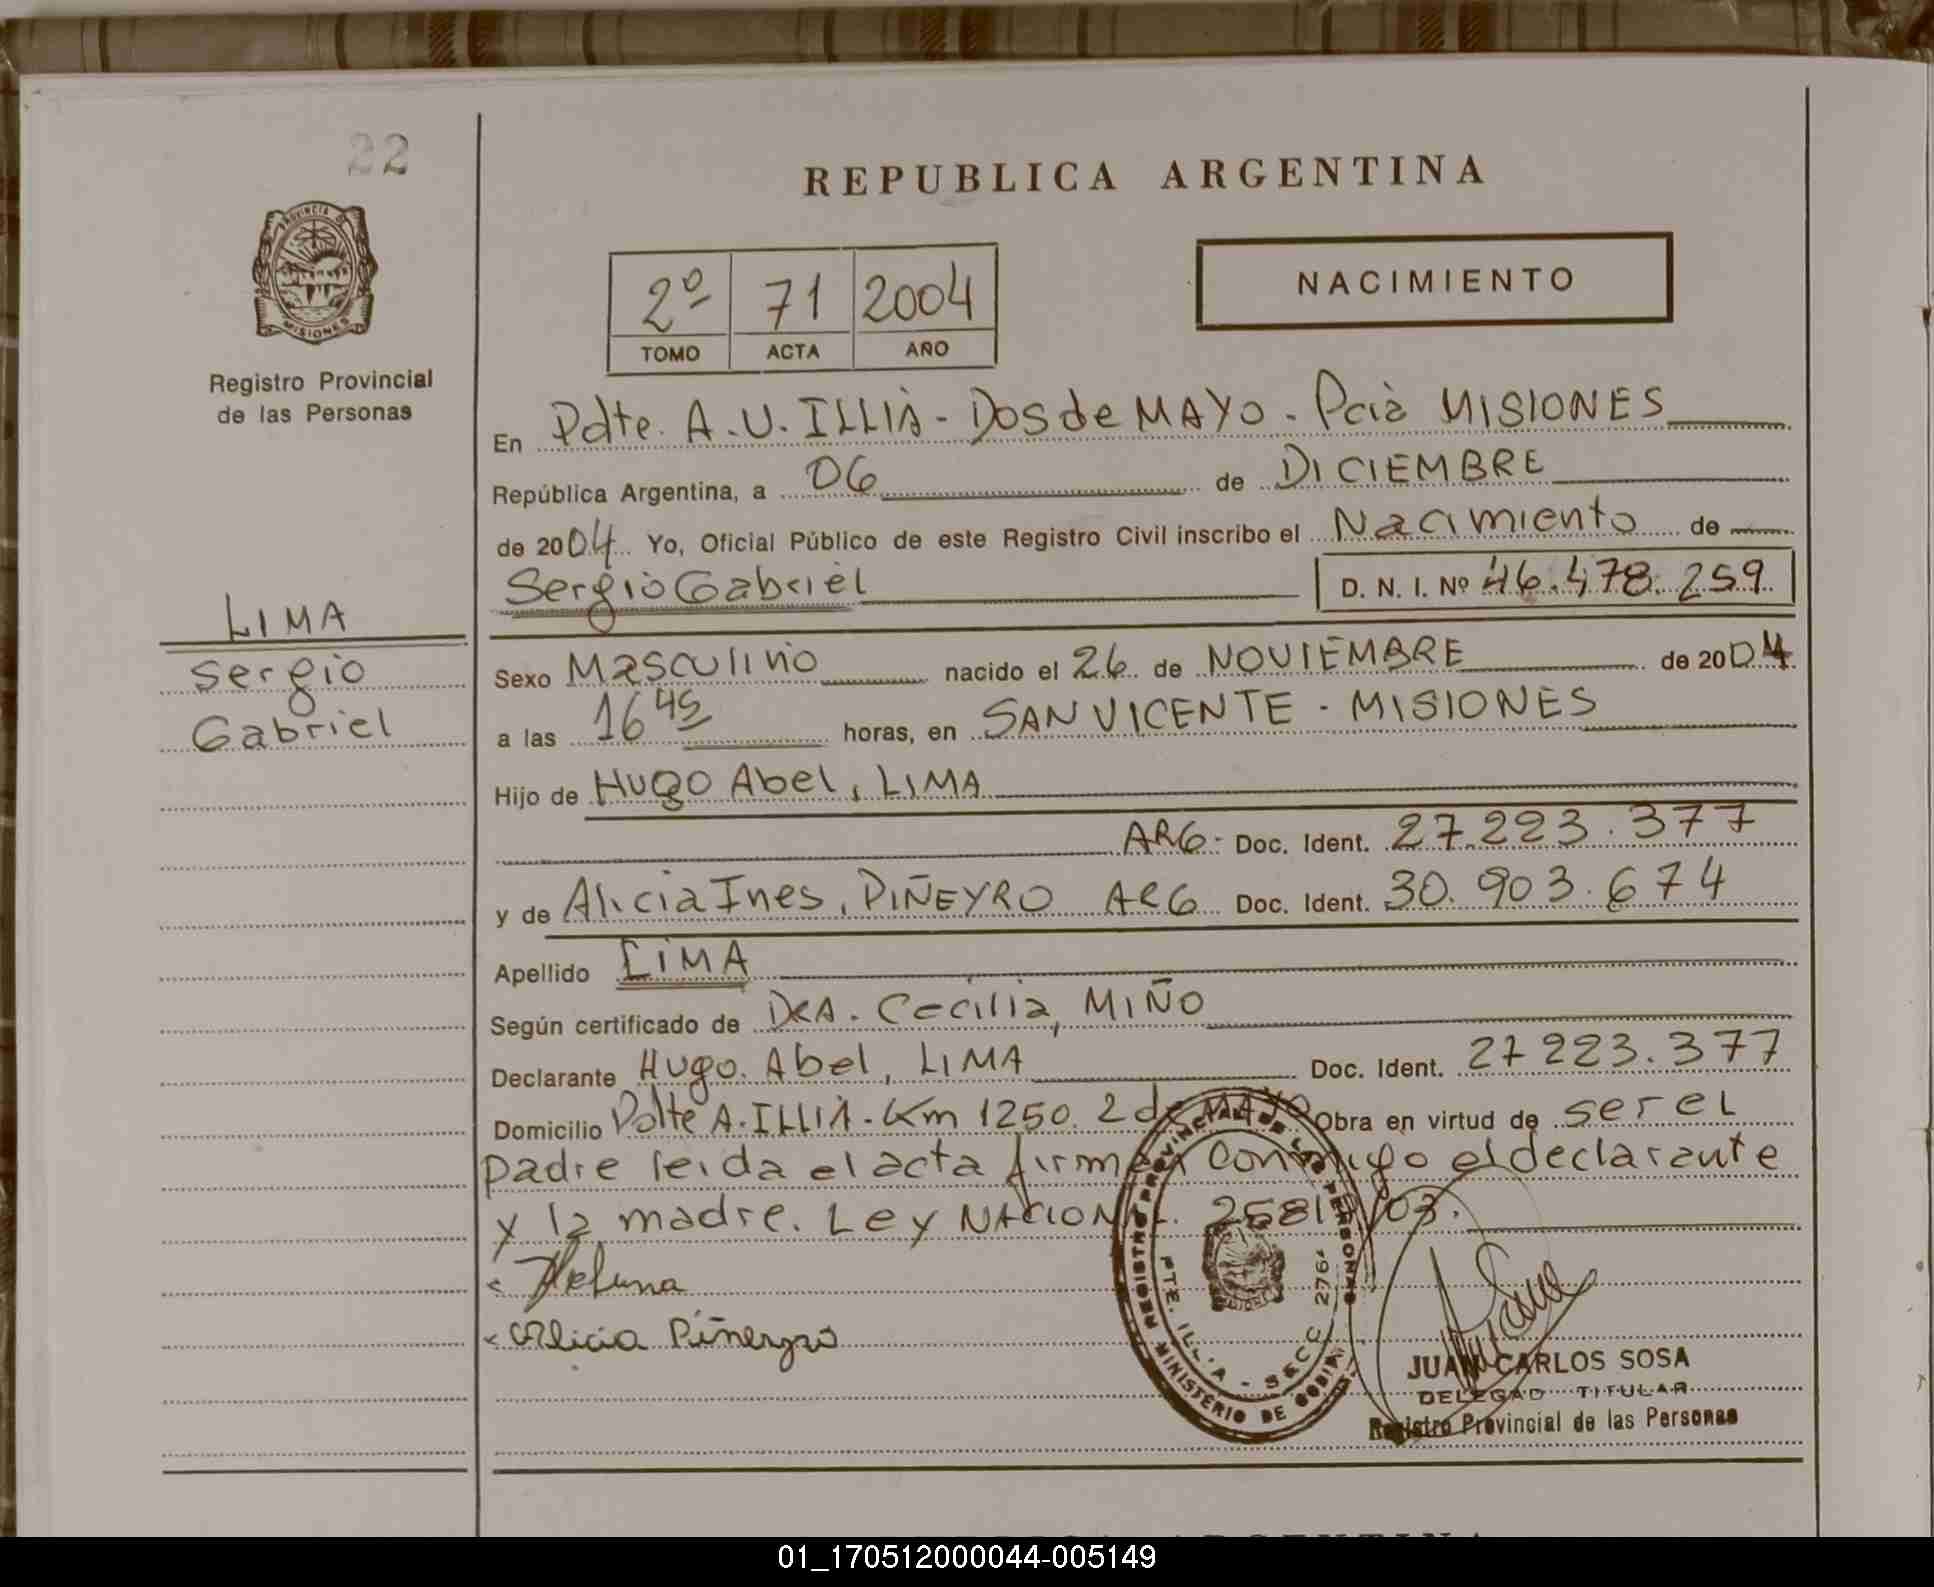 22
PROVINCIA DE
MISIONES
Registro Provincial
de las Personas
LIMA
Sergio
Gabriel
REPUBLICA ARGENTINA
2º 71 2004
TOMO ACTA AÑO
NACIMIENTO
En Pdte. A.U. ILLIA - Dos de MAYO - Pcia MISIONES
República Argentina, a 06 de DICIEMBRE
de 2004 Yo, Oficial Público de este Registro Civil inscribo el Nacimiento de
Sergio Gabriel D. N. I. Nº 46.478.259
Sexo Masculino nacido el 26 de NOVIEMBRE de 2004
a las 16 45 horas, en SAN VICENTE - MISIONES
Hijo de Hugo Abel, LIMA
ARG. Doc. Ident. 27.223.377
y de Alicia Ines, PIÑEYRO ARG Doc. Ident. 30.903.674
Apellido LIMA
Según certificado de DRA. Cecilia, MIÑO
Declarante Hugo Abel, LIMA Doc. Ident. 27 223.377
Domicilio Pdte A. ILLIA - Km 1250. 2 de MAYO Obra en virtud de ser el
padre leida el acta firman conmigo el declarante
y la madre. Ley NACIONAL. 25819/03.
Alicia Piñeyro
REGISTRO PROVINCIAL DE LAS PERSONAS
MINISTERIO DE GOBIR
PTE. ILLIA - SECC 2761
JUAN CARLOS SOSA
DELEGAD TITULAR
Registro Provincial de las Personas
REPUBLICA ARGENTINA
01_170512000044-005149